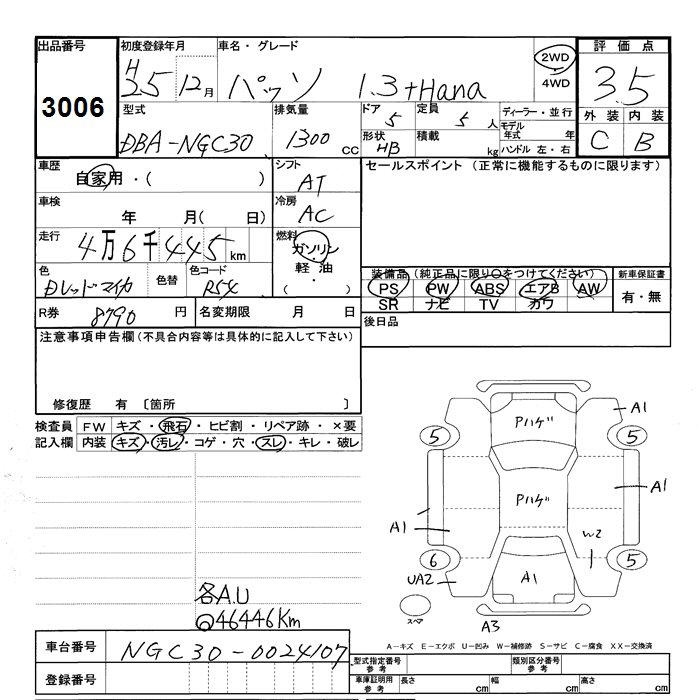 出品番号 初度登録年月 車名・グレード 評価点
3006 H25 12月 パッソ 1.3+Hana 2WD 4WD 3.5
型式 排気量 ドア 5 定員 5 人 ディーラー・並行 外装 内装
DBA-NGC30 1300 cc 形状 HB 積載 kg モデル年式 年 ハンドル 左・右 C B
車歴 自家用・( ) シフト AT セールスポイント (正常に機能するものに限ります)
車検 年 月( 日) 冷房 AC
走行 4万6千445 km 燃料 ガソリン 軽油 ( )
色 Dレッドマイカ 色替 色コード R54 装備品 (純正品に限り○をつけてください) 新車保証書
PS PW ABS エアB AW 有・無
SR ナビ TV カワ
R券 8790 円 名変期限 月 日 後日品
注意事項申告欄 (不具合内容等は具体的に記入して下さい)
修復歴 有 〔箇所 〕
検査員 FW キズ・飛石・ヒビ割・リペア跡・×要
記入欄 内装 キズ・汚レ・コゲ・穴・スレ・キレ・破レ
Pハゲ A1
5 5
Pハゲ A1
A1
W2
6 5
UA2 A1
スペア
A3
各A.U
◎46446Km
A-キズ E-エクボ U-凹み W-補修跡 S-サビ C-腐食 XX-交換済
車台番号 NGC30-0024107 型式指定番号 参考 類別区分番号 参考
登録番号 車庫証明用 参考 長さ cm 幅 cm 高さ cm